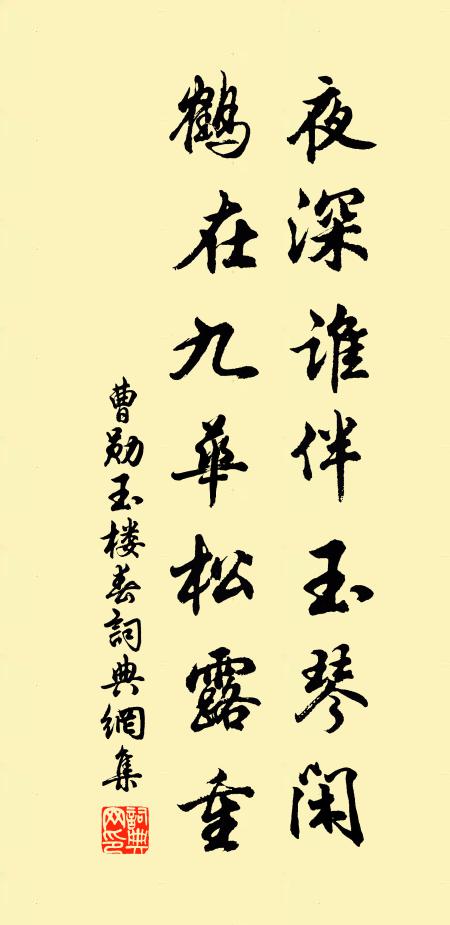 夜深谁伴玉琴闲
鹤在九华松露重
曹勋玉楼春詞典網集
詞典
网印